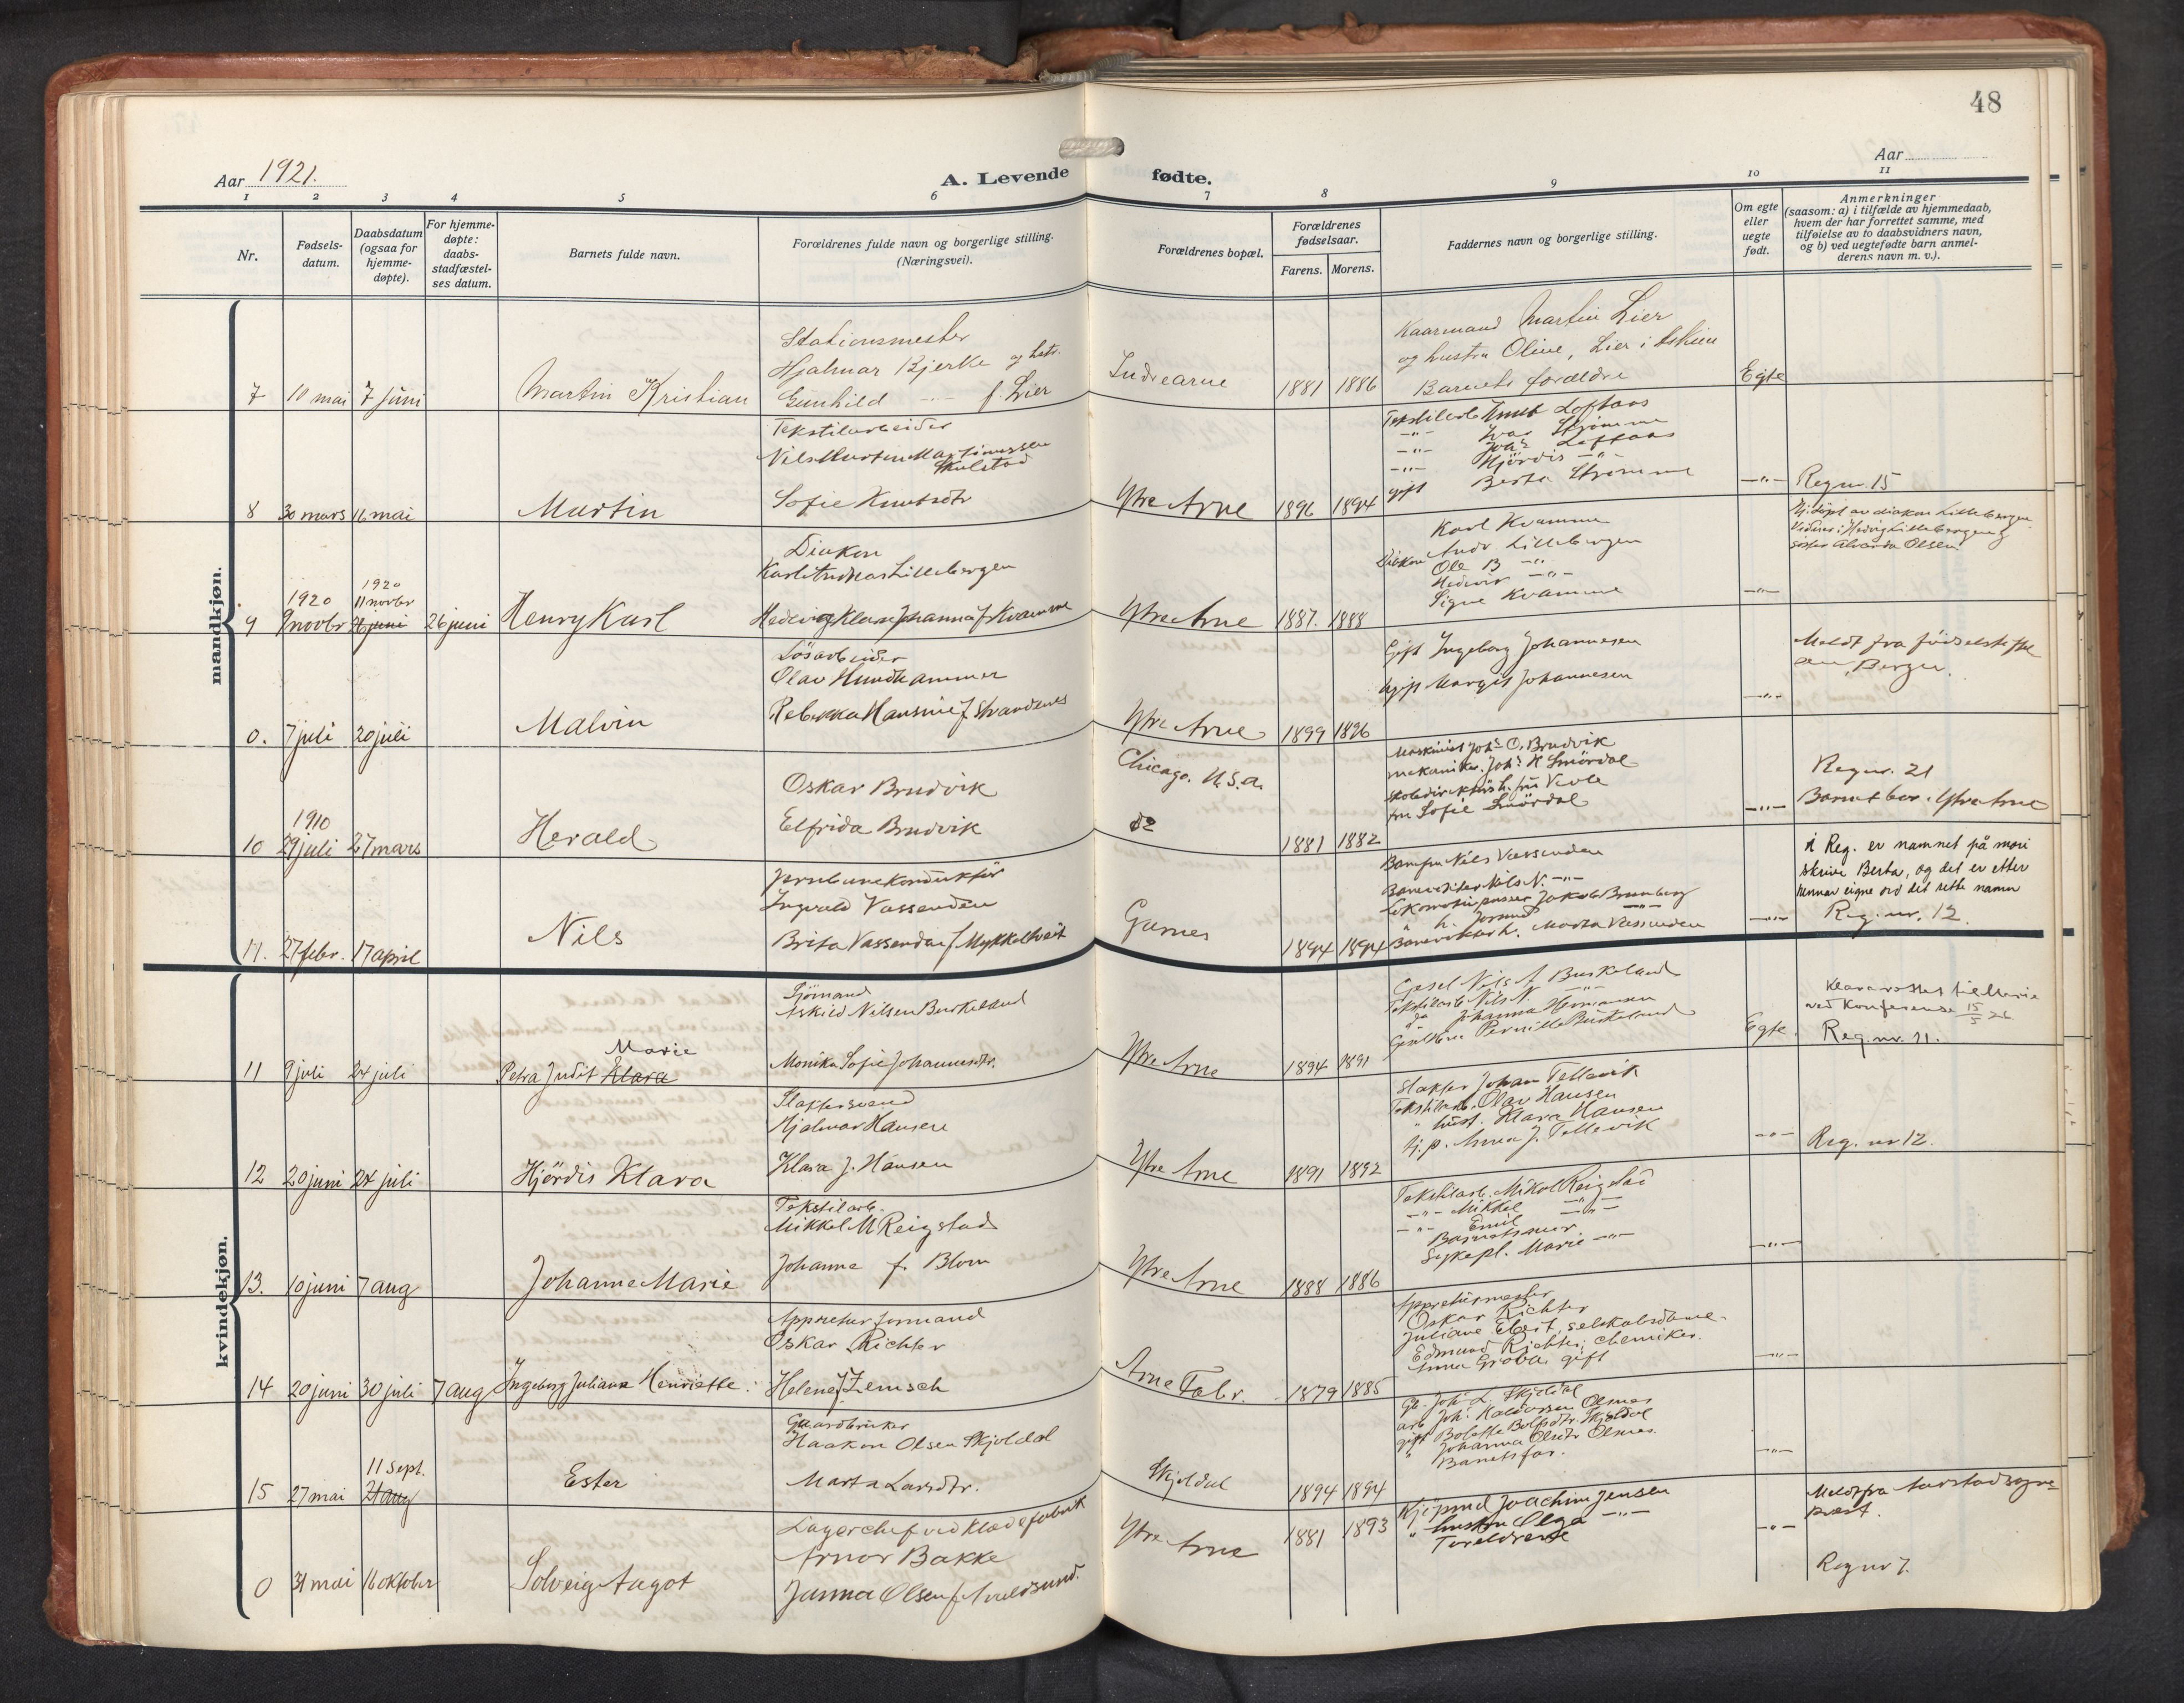 48
Aar 1921.
A. Levende fødte.
Aar
1 2 3 4 5 6 7 8 9 10 11
Nr.
Fødsels-
datum.
Daabsdatum
(ogsaa for
hjemme-
døpte).
For hjemme-
døpte:
daabs-
stadfæstel-
ses datum.
Barnets fulde navn.
Forældrenes fulde navn og borgerlige stilling.
(Næringsvei).
Forældrenes bopæl.
Forældrenes
fødselsaar.
Farens. Morens.
Faddernes navn og borgerlige stilling.
Om egte
eller
uegte
født.
Anmerkninger
(saasom: a) i tilfælde av hjemmedaab,
hvem der har forrettet samme, med
tilføielse av to daabsvidners navn,
og b) ved uegtefødte barn anmel-
derens navn m. v.).
mandkjøn.
7 10 mai 7 juni
Martin Kristian
Stationsmester
Hjalmar Bjerke og hstr.
Gunhild —"— f. Lier
Indrearne
1881 1886
Kaarmand Martin Lier
og hustru Oline, Lier i Askim
Barnets forældre
Egte
8 30 mars 16 mai
Martin
Tekstilarbeider
Nils Martin Martinussen
Skulstad
Sofie Knutsdtr
Ytre Arne
1896 1894
Tekstilarb Knut Loftaas
—"— Ivar Strømme
—"— Johs Loftaas
—"— Hjördis —"—
gift Berta Strømme
—"—
Reg nr. 15
9 1920 9 novbr 1920 11 novbr 26 juni 26 juni
Henry Karl
Diakon
Karl Andreas Lillebergen
Hedevig Klara Johanna f Kvamme
Ytre Arne
1887. 1888
Karl Kvamme
Diakon Andr Lillebergen
Ole B —"—
Hedevig —"—
Signe Kvamme
—"—
Hj. döpt av diakon Lillebergen
Vidner: Hedvig Lillebergen og
søster Alvarda Olsen
0. 7 juli 20 juli
Malvin
Løsarbeider
Olav Hundhammer
Rebekka Hansine f Strandenes
Ytre Arne
1899 1896
Gift Ingeborg Johannesen
Ugift Margit Johannesen
—"—
Meldt fra fødselsstiftel
sen, Bergen.
10 1910 29 juli 27 mars
Herald
Oskar Brudvik
Elfrida Brudvik
Chicago. U.S.a.
do
1881 1882
Maskinist Johs O. Brudvik
mekaniker. Johs H Smördal
skoledirektörsh. fru Vevle
fru Sofie Smördal
—"—
Reg nr. 21
Barnet bor i Ytre Arne
11. 27 febr. 17 april
Nils
Jernbanekonduktör
Ingvald Vassenden
Brita Vassenden f Mykkeltveit
Garnes
1894 1894
Nils Vassenden
Nils N. —"—
Jakob Brunborg
Marta Vassenden
—"—
i Reg. er namnet på mori
skrive Berta, og det er etter
hennar eigne ord det rette namn
Reg. nr. 12.
kvindekjøn.
11 9 juli 24 juli
Marie
Petra Judit Klara
Sjömand
Askild Nilsen Burkeland
Monika Sofie Johannesdtr.
Ytre Arne
1894 1891
Gjesel Nils A Burkeland
Tekstilarb Nils N. —"—
" da Johanna Hermansen
Pernille Burkeland
Egte.
Klara rettet til Marie
ved Konferense 15/5 26
Reg. nr. 11.
12 20 juni 24 juli
Hjördis Klara
Slaktersvend
Hjalmar Hansen
Klara J. Hansen
Ytre Arne
1891 1892
Slakter Johan Tellevik
Tekstilarb. Olav Hansen
" hust. Klara Hansen
Hj. p. Anna J. Tellevik
—"—
Reg. nr 12.
13. 10 juni 7 aug
Johanne Marie
Tekstilarb.
Mikkel M Reigstad
Johanne f. Blom
Ytre Arne
1888 1886
Tekstilarb. Mikal Reigstad
—"— Mikkel —"—
—"— Emil —"—
Barnets mor
Sykepl. Marie —"—
—"—
14 20 juni 30 juli 7 aug
Ingeborg Juliane Henriette.
Appreturformand
Oskar Richter
Helene f Zemsch
Arne Fabr.
1879 1885
Appreturmester
Oskar Richter
Juliane Ebert, selskabsdame.
Edmund Richter, chemiker.
Anna Grova gift
—"—
15 27 mai 11 sept. 21 aug
Ester
Gaardbruker
Haakon Olsen Skjoldal
Marta Larsdtr.
Skjoldal
1894 1894
Gb. Johs L. Skjoldal
arb Johs Haldorsen Olsnes
gift Bolette Bolfsdtr. Skjoldal
" Johanna Olsdtr Olsnes.
Barnets far.
—"—
0 31 mai 16 oktober
Solveig Aagot
Lagerchef ved Klædefabrik
Arnor Bakke
Janna Olsen f Araldsund.
Ytre Arne
1881 1893
Kjöpmd Joachim Jensen
" hustru Olga —"—
Foreldrene
—"—
Meldt fra Aarstad sogne
præst.
Reg nr 7.